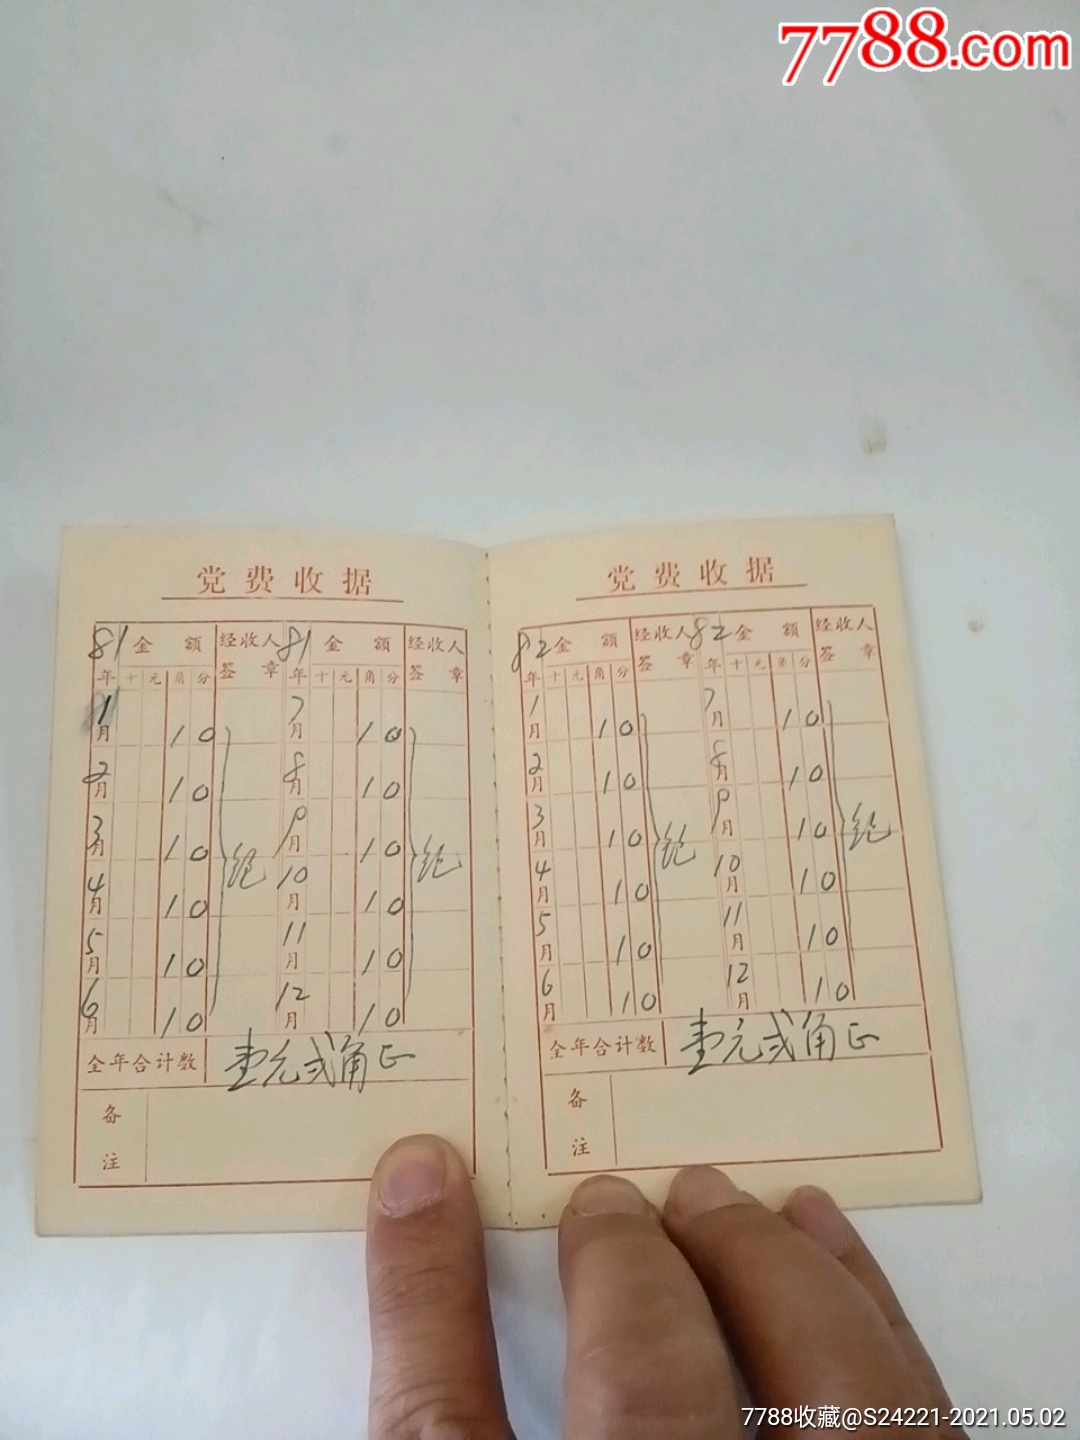 7788.com
党费收据
81年 金额 经收人签章 81年 金额 经收人签章
十 元 角 分 十 元 角 分
1月 1 0 7月 1 0
2月 1 0 8月 1 0
3月 1 0 9月 1 0
4月 1 0 10月 1 0
5月 1 0 11月 1 0
6月 1 0 12月 1 0
全年合计数 壹元弍角正
备注
党费收据
82年 金额 经收人签章 82年 金额 经收人签章
十 元 角 分 十 元 角 分
1月 1 0 7月 1 0
2月 1 0 8月 1 0
3月 1 0 9月 1 0
4月 1 0 10月 1 0
5月 1 0 11月 1 0
6月 1 0 12月 1 0
全年合计数 壹元弍角正
备注
7788收藏@S24221-2021.05.02